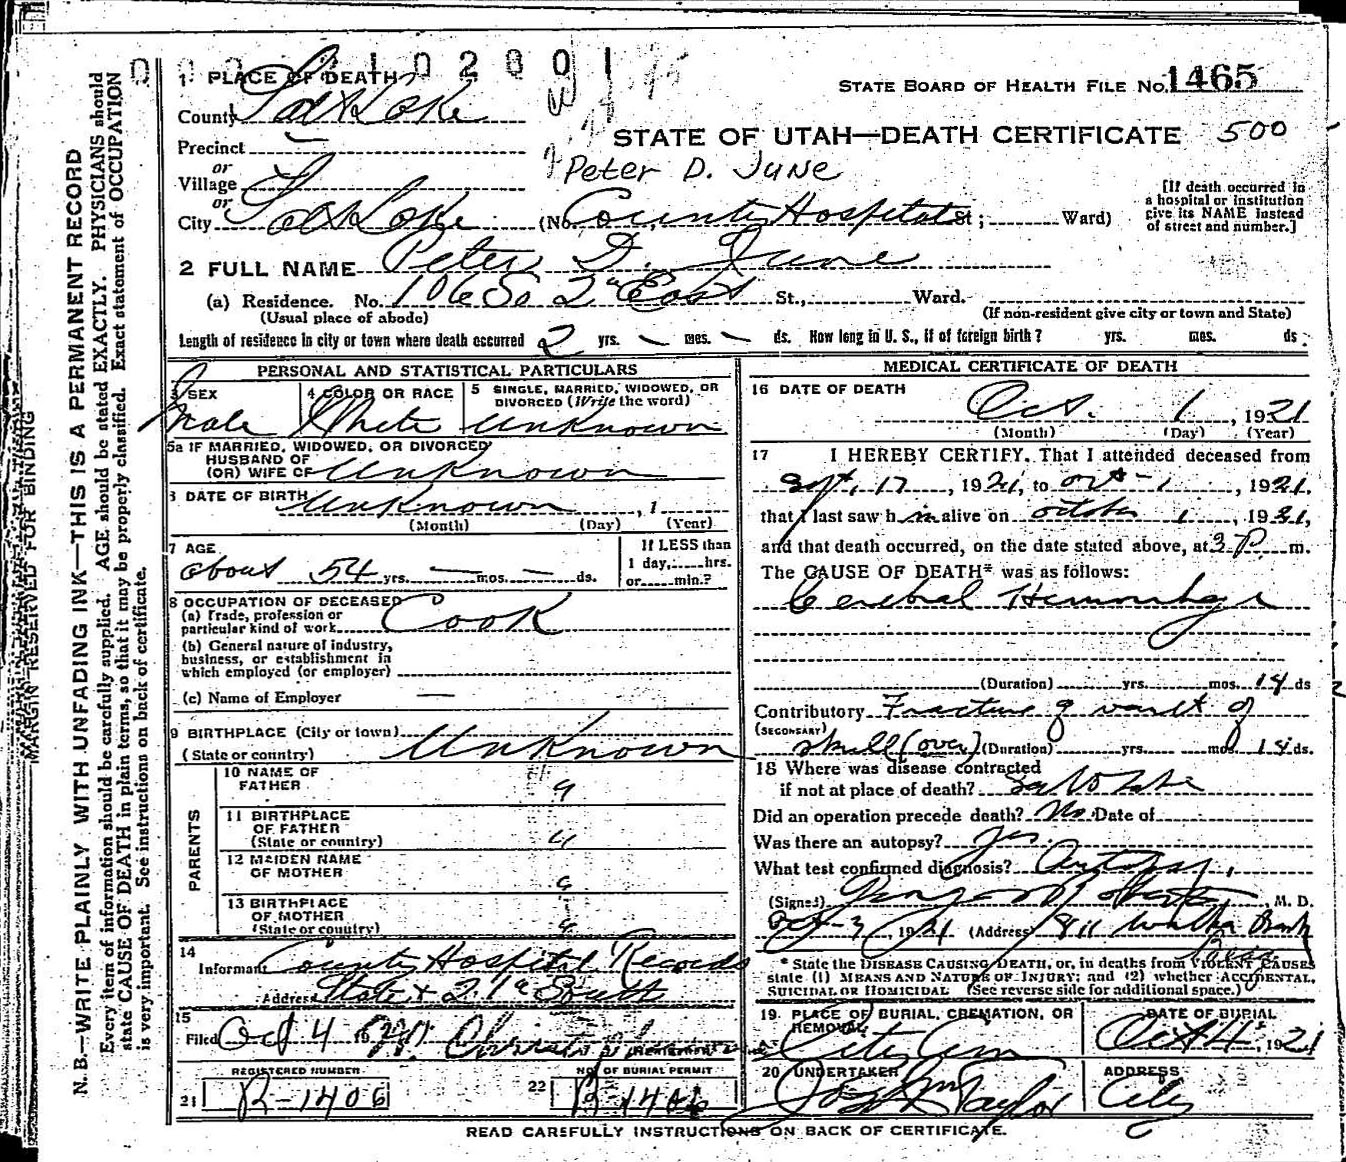 1 PLACE OF DEATH
STATE BOARD OF HEALTH FILE No. 1465
County Salt Lake
STATE OF UTAH—DEATH CERTIFICATE 500
Precinct —
Peter D. June
or
Village
or
City Salt Lake (No. County Hospital St.; Ward)
[If death occurred in
a hospital or institution
give its NAME instead
of street and number.]
2 FULL NAME Peter D. June
(a) Residence. No. 106 So 2nd East St., Ward.
(Usual place of abode) (If non-resident give city or town and State)
Length of residence in city or town where death occurred 2 yrs. — mos. — ds. How long in U. S., if of foreign birth? yrs. mos. ds.
PERSONAL AND STATISTICAL PARTICULARS
3 SEX
Male
4 COLOR OR RACE
White
5 SINGLE, MARRIED, WIDOWED, OR
DIVORCED (Write the word)
Unknown
5a IF MARRIED, WIDOWED, OR DIVORCED
HUSBAND OF
(OR) WIFE OF Unknown
6 DATE OF BIRTH Unknown , 1
(Month) (Day) (Year)
7 AGE
about 54 yrs. — mos. — ds.
If LESS than
1 day, hrs.
or min.?
8 OCCUPATION OF DECEASED
(a) Trade, profession or
particular kind of work Cook
(b) General nature of industry,
business, or establishment in
which employed (or employer)
(c) Name of Employer —
9 BIRTHPLACE (City or town)
(State or country) Unknown
PARENTS
10 NAME OF
FATHER "
11 BIRTHPLACE
OF FATHER
(State or country) "
12 MAIDEN NAME
OF MOTHER "
13 BIRTHPLACE
OF MOTHER
(State or country) "
14
Informant County Hospital Records
Address State & 21st South
15
Filed Oct 4
REGISTERED NUMBER
21 R-1406
NO. OF BURIAL PERMIT
22 R-1406
MEDICAL CERTIFICATE OF DEATH
16 DATE OF DEATH
Oct. 1 , 1921
(Month) (Day) (Year)
17 I HEREBY CERTIFY, That I attended deceased from
Sept. 17 , 1921, to Oct - 1 , 1921,
that I last saw him alive on October 1 , 1921,
and that death occurred, on the date stated above, at 3 P m.
The CAUSE OF DEATH* was as follows:
Cerebral Hemorrhage
(Duration) yrs. mos. 14 ds
Contributory Fracture of vault of
(SECONDARY)
skull (over) (Duration) yrs. mos 14 ds.
18 Where was disease contracted
if not at place of death? Salt Lake
Did an operation precede death? No Date of
Was there an autopsy? Yes
What test confirmed diagnosis? Autopsy
(Signed) , M. D.
Oct-3, 1921 (Address) 811 Walker Bank
* State the DISEASE CAUSING DEATH, or, in deaths from VIOLENT CAUSES
state (1) MEANS AND NATURE OF INJURY; and (2) whether ACCIDENTAL,
SUICIDAL OR HOMICIDAL (See reverse side for additional space.)
19. PLACE OF BURIAL, CREMATION, OR
REMOVAL
City Cem
DATE OF BURIAL
Oct 4, 1921
20 UNDERTAKER
Jos. Wm Taylor
ADDRESS
City
READ CAREFULLY INSTRUCTIONS ON BACK OF CERTIFICATE.
MARGIN RESERVED FOR BINDING
N. B.—WRITE PLAINLY WITH UNFADING INK—THIS IS A PERMANENT RECORD
Every item of information should be carefully supplied. AGE should be stated EXACTLY. PHYSICIANS should
state CAUSE OF DEATH in plain terms, so that it may be properly classified. Exact statement of OCCUPATION
is very important. See instructions on back of certificate.